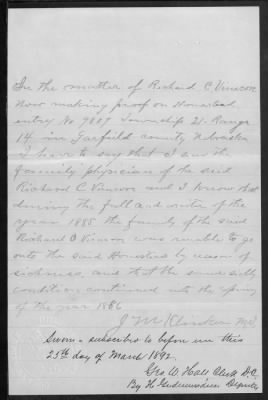 In the matter of Richard C Vinson
Now making proof on Homestead
entry No 7807 Township 21. Range
14 in Garfield county Nebraska
I have to say that I am the
family physician of the said
Richard C Vinson and I know that
during the fall and winter of the
year 1885 the family of the said
Richard C Vinson was unable to go
onto the said Homestead by reason of
sickness, and that the same silly
condition continued into the spring
of the year 1886
J M Klinker M.D.
Sworn & subscribed to before me this
25th day of March 1892.
Geo W. Hall Clerk D.C.
By H Deputy